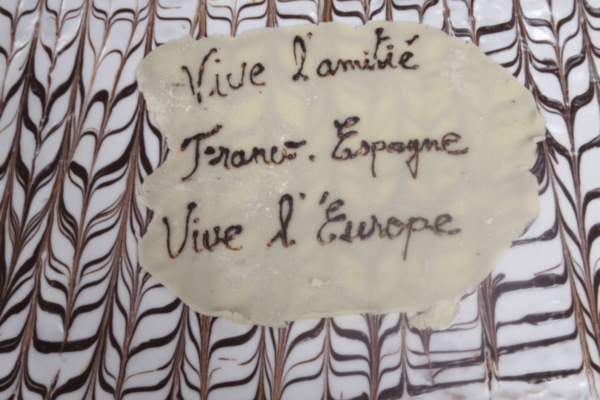 Vive l'amitié
Franco-Espagne
Vive l'Europe